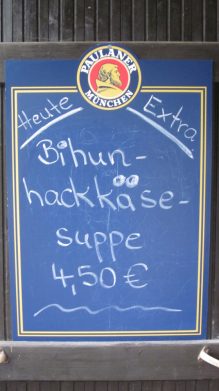 PAULANER
MÜNCHEN
Heute Extra
Bihun-
hackkäse-
suppe
4,50 €